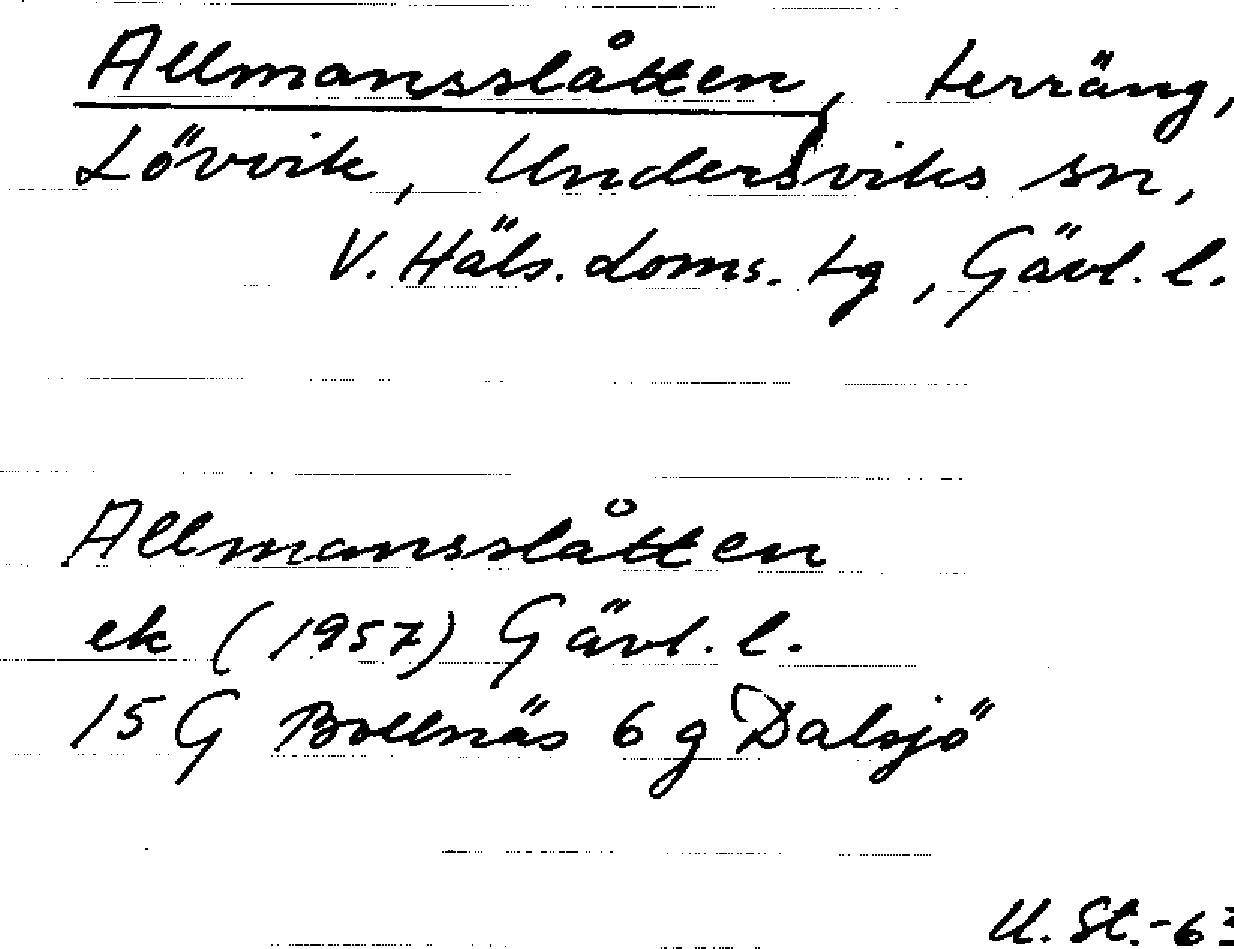 Allmansslåtten, terräng,
Lövvik, Undersviks sn,
V. Häls. doms. tg, Gävl. l.
Allmansslåtten
ek (1957) Gävl. l.
15 G Bollnäs 6 g Dalsjö
U. St.-63